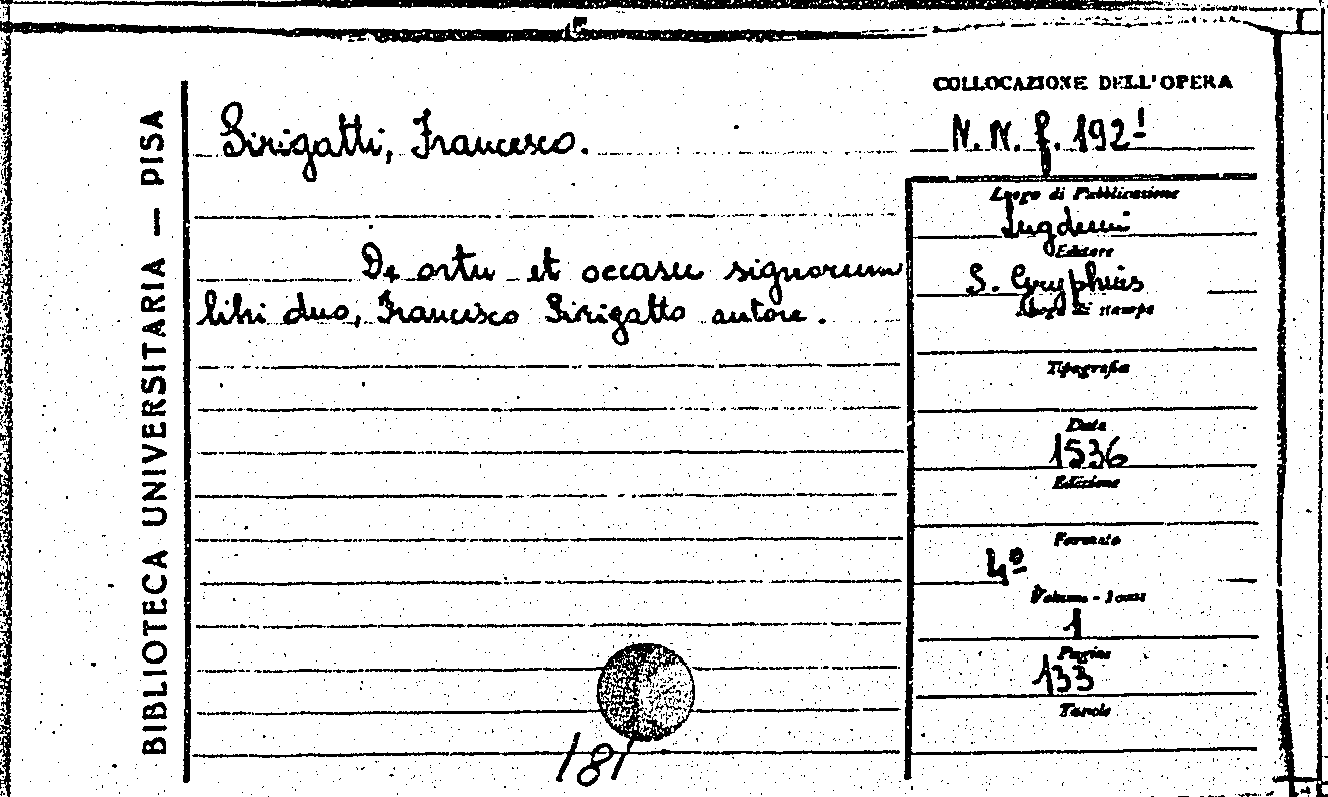 BIBLIOTECA UNIVERSITARIA — PISA
Sirigatti, Francesco.
De ortu et occasu signorum
libri duo, Francisco Sirigatto autore.
181
COLLOCAZIONE DELL'OPERA
N. N. f. 192¹
Luogo di Pubblicazione
Lugduni
Editore
S. Gryphius
Luogo di stampa
Tipografia
Data
1536
Edizione
Formato
4º
Volume - Tomi
1
Pagine
133
Tavole